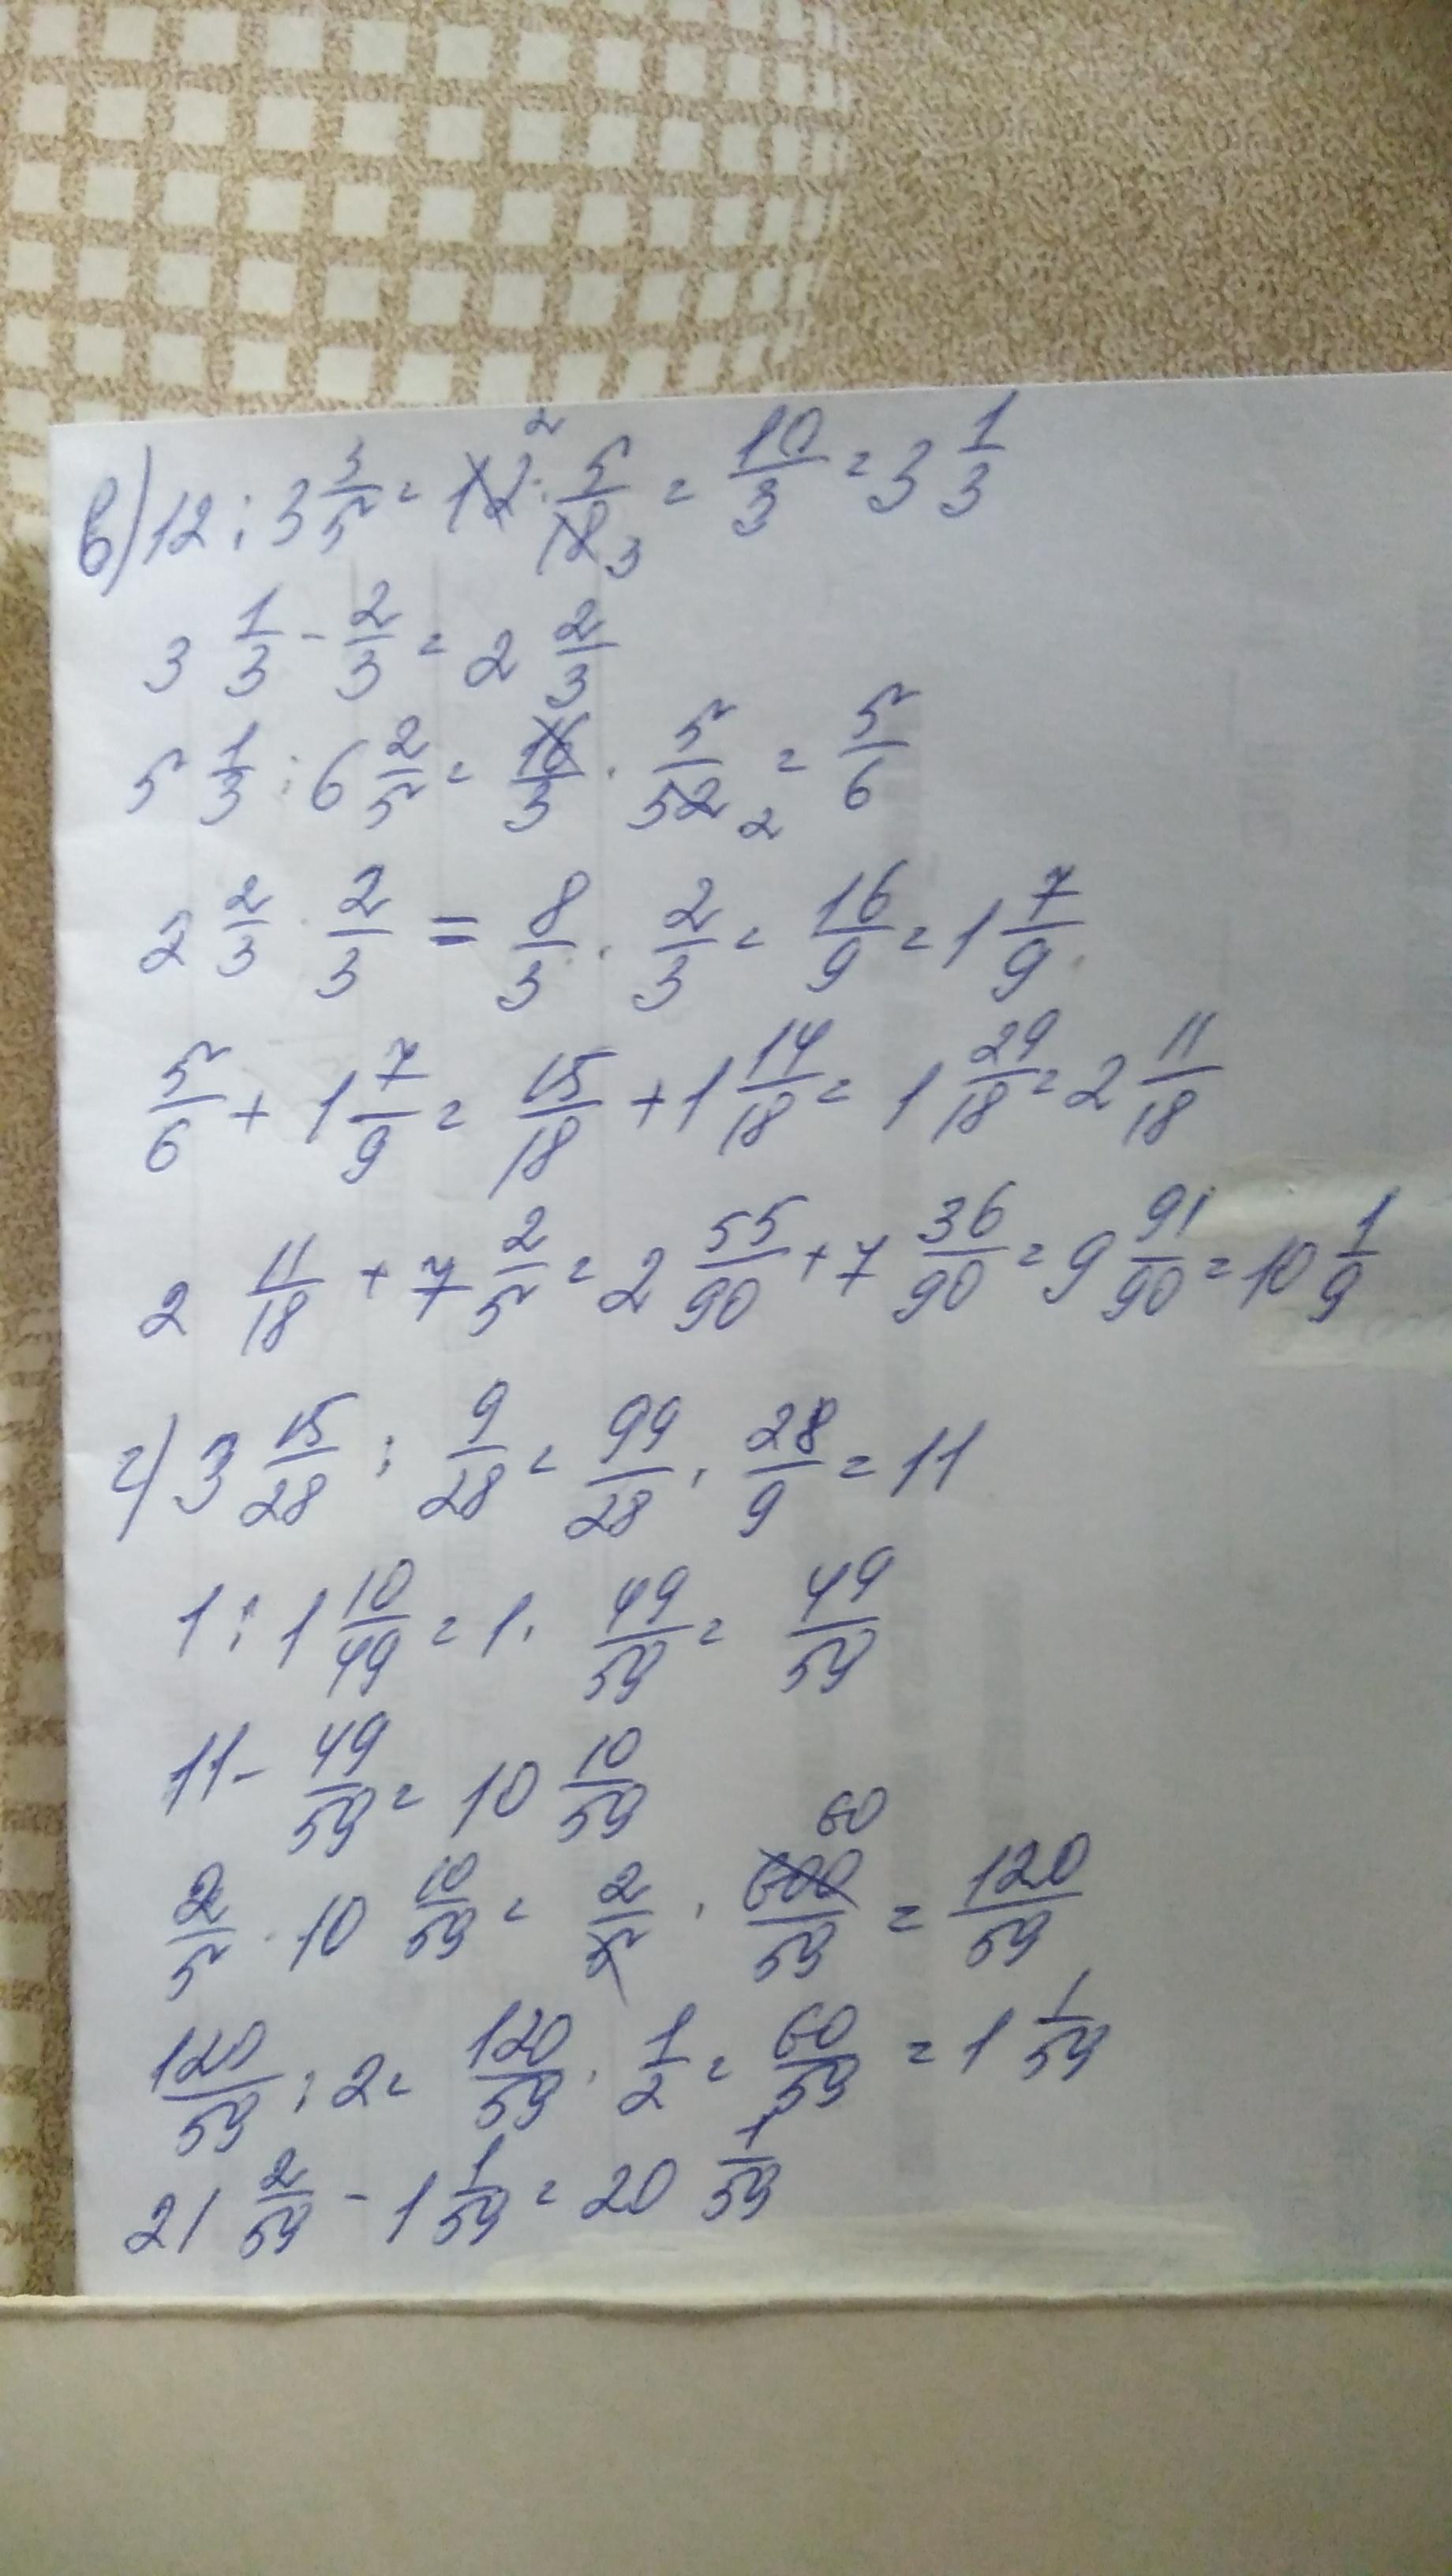 в) 12 : 3 3/5 = 12 2 · 5/18 3 = 10/3 = 3 1/3
3 1/3 - 2/3 = 2 2/3
5 1/3 : 6 2/5 = 16/3 · 5/32 2 = 5/6
2 2/3 · 2/3 = 8/3 · 2/3 = 16/9 = 1 7/9
5/6 + 1 7/9 = 15/18 + 1 14/18 = 1 29/18 = 2 11/18
2 11/18 + 7 2/5 = 2 55/90 + 7 36/90 = 9 91/90 = 10 1/9
г) 3 15/28 : 9/28 = 99/28 · 28/9 = 11
1 : 1 10/49 = 1 · 49/59 = 49/59
11 - 49/59 = 10 10/59
2/5 · 10 10/59 = 2/5 · 600 60/59 = 120/59
120/59 : 2 = 120/59 · 1/2 = 60/59 = 1 1/59
21 2/59 - 1 1/59 = 20 1/59